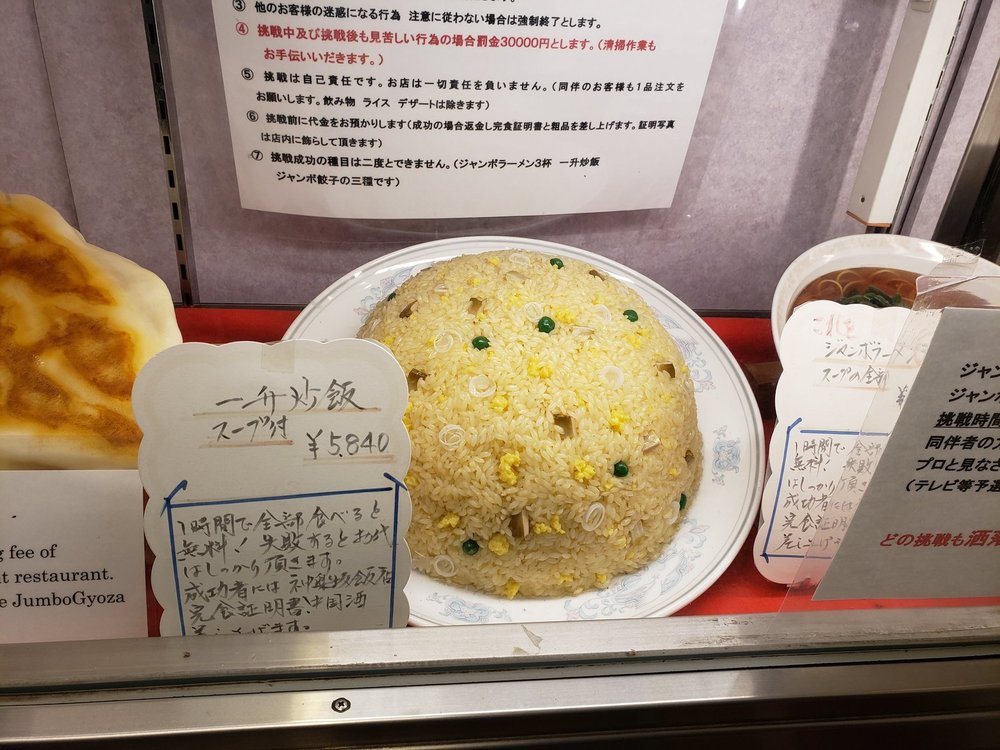 ③ 他のお客様の迷惑になる行為 注意に従わない場合は強制終了とします。
④ 挑戦中及び挑戦後も見苦しい行為の場合罰金30000円とします。(清掃作業も
お手伝いいだきます。)
⑤ 挑戦は自己責任です。お店は一切責任を負いません。(同伴のお客様も1品注文を
お願いします。飲み物 ライス デザートは除きます)
⑥ 挑戦前に代金をお預かりします(成功の場合返金し完食証明書と粗品を差し上げます。証明写真
は店内に飾らして頂きます)
⑦ 挑戦成功の種目は二度とできません。(ジャンボラーメン3杯 一升炒飯
ジャンボ餃子の三種です)
一升炒飯
スープ付
¥5.840
1時間で全部食べると
無料! 失敗するとお代
はしっかり頂きます。
成功者には神楽坂飯店
完食証明書、中国酒
差し上げます。
g fee of
t restaurant.
e JumboGyoza
これも
ジャンボラーメン
スープの全部
1時間で全部
無料! 失敗
はしっかり頂
成功者には
完食証明
差し上げ
ジャン
ジャンボ
挑戦時間
同伴者の
プロと見なさ
(テレビ等予選
どの挑戦も酒